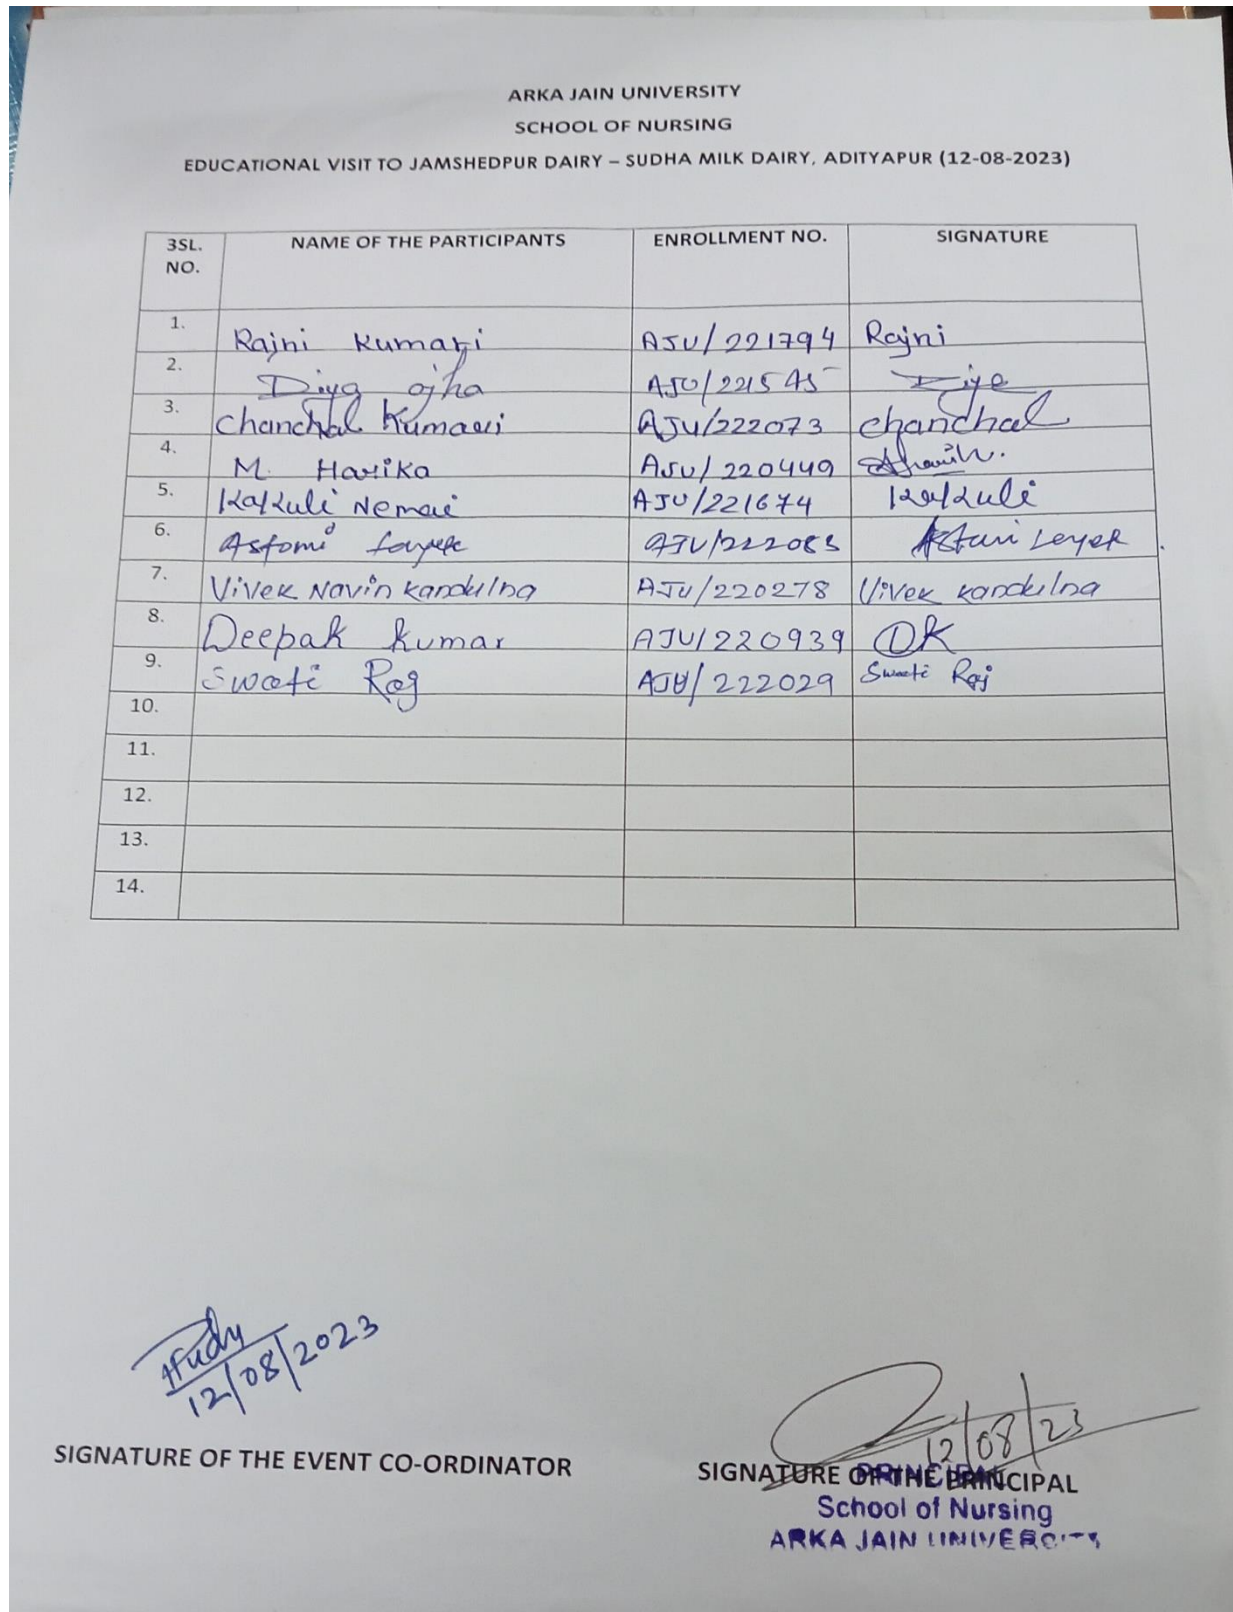 ARKA JAIN UNIVERSITY
SCHOOL OF NURSING
EDUCATIONAL VISIT TO JAMSHEDPUR DAIRY – SUDHA MILK DAIRY, ADITYAPUR (12-08-2023)
3SL. NO. NAME OF THE PARTICIPANTS ENROLLMENT NO. SIGNATURE
1. Rajni Kumari AJU/221794 Rajni
2. Diya ojha AJU/221545 Diya
3. Chanchal Kumari AJU/222073 Chanchal
4. M. Harika AJU/220449
5. Kakuli Nemai AJU/221674 Kakuli
6. Astomi AJU/222083
7. Vivek Navin Kandulna AJU/220278 Vivek Kandulna
8. Deepak Kumar AJU/220939 DK
9. Swati Raj AJU/222029 Swati Raj
10.
11.
12.
13.
14.
12/08/2023
12/08/23
SIGNATURE OF THE EVENT CO-ORDINATOR
SIGNATURE OF THE PRINCIPAL
PRINCIPAL
School of Nursing
ARKA JAIN UNIVERSITY